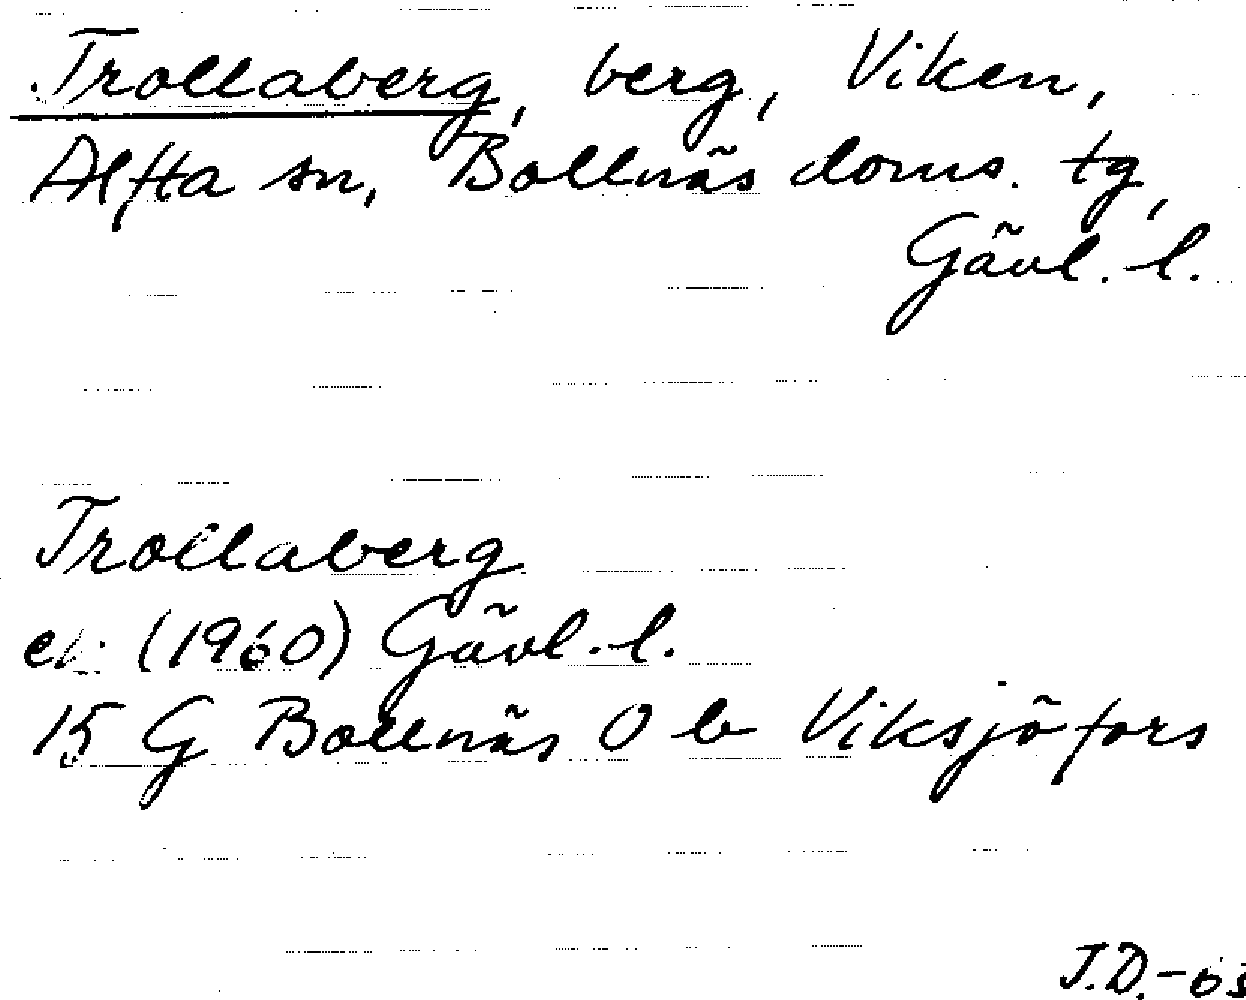 Trollaberg, berg, Viken,
Alfta sn, Bollnäs doms. tg,
Gävl. l.
Trollaberg
ek (1960) Gävl. l.
15 G Bollnäs 0 b Viksjöfors
J.D.-